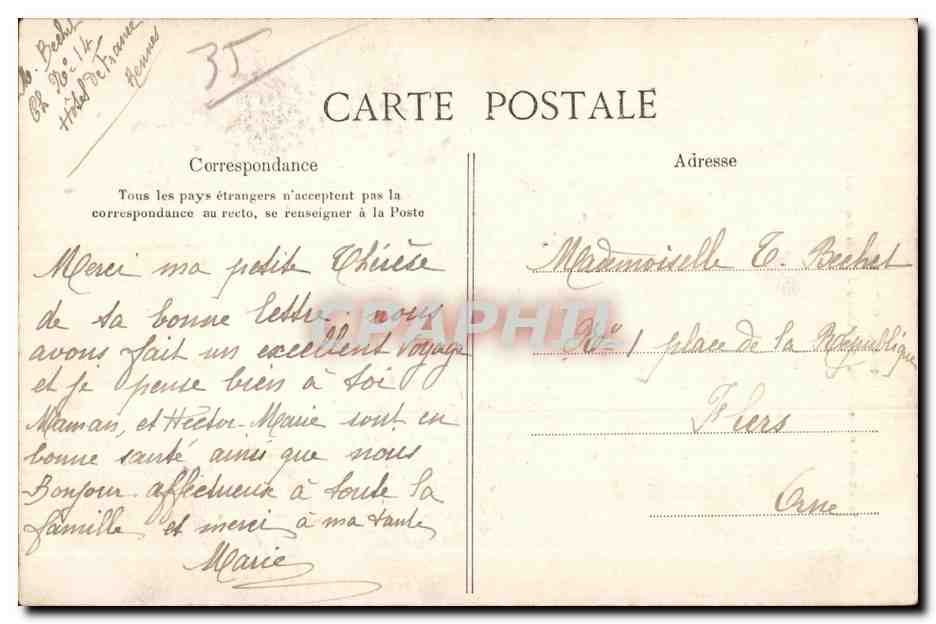 M. Bechet
Ch Nº 14
Hôtel de France
Rennes
35
CARTE POSTALE
Correspondance
Tous les pays étrangers n'acceptent pas la
correspondance au recto, se renseigner à la Poste
Merci ma petite Thérèse
de ta bonne lettre. nous
avons fait un excellent voyage
et je pense bien à toi
Maman, et Hector-Marie sont en
bonne santé ainsi que nous
Bonjour affectueux à toute la
famille et merci à ma tante
Marie
Adresse
Mademoiselle T. Bechet
Nº 1 place de la République
Flers
Orne
CPAPHIL